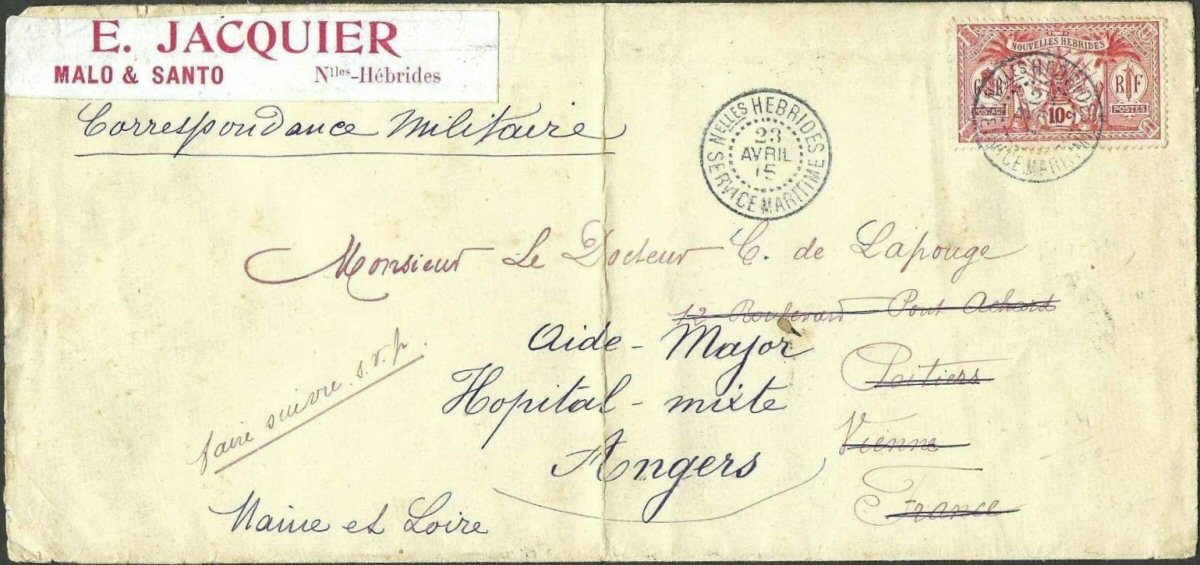 E. JACQUIER
MALO & SANTO Nlles-Hébrides
Correspondance Militaire
NELLES HEBRIDES
23
AVRIL
15
SERVICE MARITIME
NOUVELLES HEBRIDES
RF
10c
POSTES
SERVICE MARITIME
Monsieur Le Docteur C. de Lapouge
12 Boulevard Pont Achard
Aide-Major
Poitiers
Hopital-mixte
Vienne
Angers
France
faire suivre s.v.p.
Maine et Loire